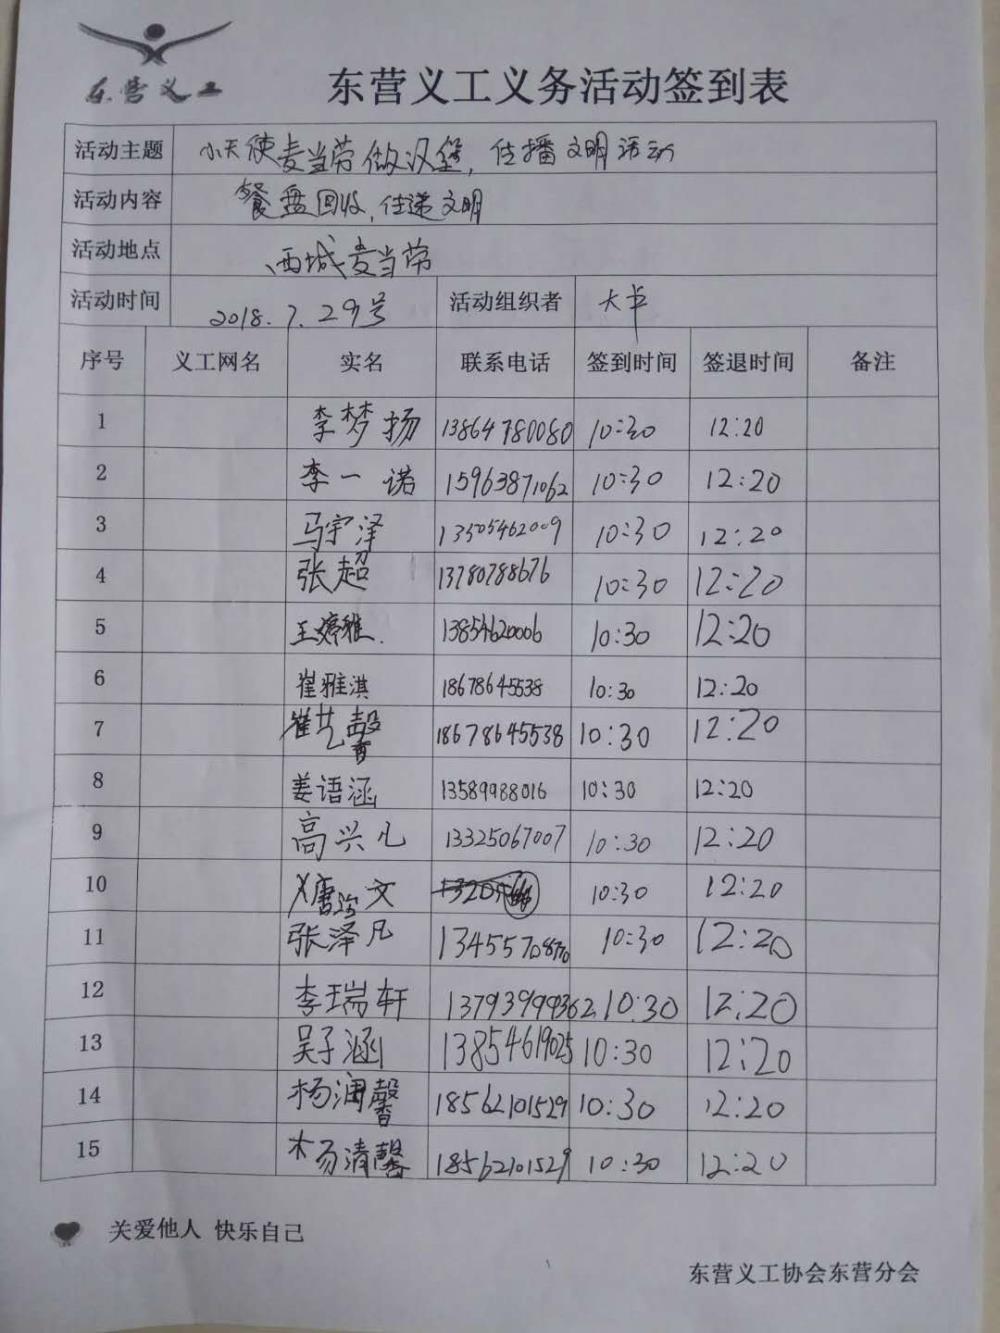 东营义工
东营义工义务活动签到表
活动主题 小天使麦当劳做汉堡，传播文明活动
活动内容 餐盘回收，传递文明
活动地点 西城麦当劳
活动时间 2018.7.29号 活动组织者 大华
序号 义工网名 实名 联系电话 签到时间 签退时间 备注
1 李梦扬 13864780080 10:30 12:20
2 李一诺 15963871062 10:30 12:20
3 马宇泽 13505462009 10:30 12:20
4 张超 13780788676 10:30 12:20
5 王婷雅 13854620006 10:30 12:20
6 崔雅淇 18678645538 10:30 12:20
7 崔艺馨 18678645538 10:30 12:20
8 姜语涵 13589988016 10:30 12:20
9 高兴凡 13325067007 10:30 12:20
10 文 10:30 12:20
11 张泽凡 13455708770 10:30 12:20
12 李瑞轩 13793999362 10:30 12:20
13 吴子涵 13854619025 10:30 12:20
14 杨润馨 18562101529 10:30 12:20
15 杨清馨 18562101529 10:30 12:20
关爱他人 快乐自己
东营义工协会东营分会